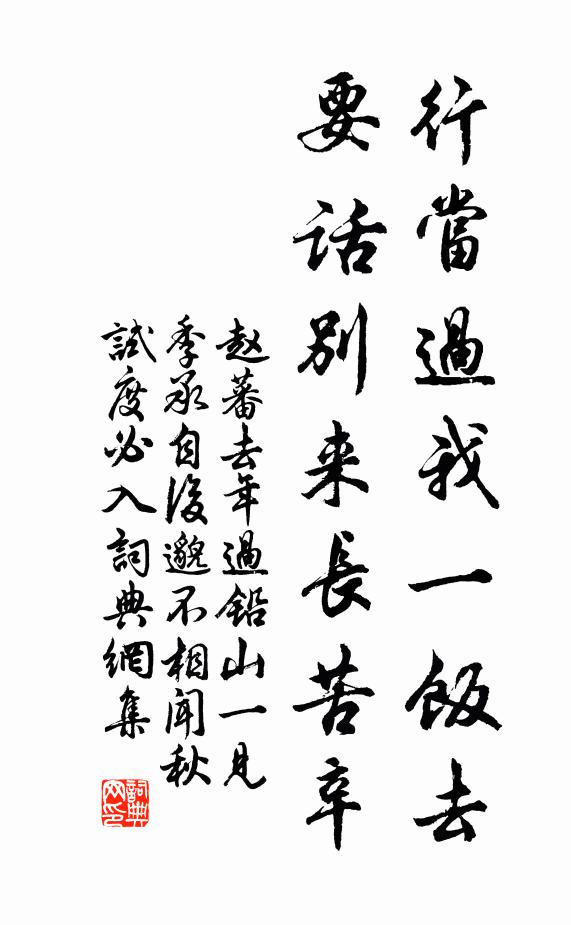 行當過我一飯去
要話別来長苦辛
赵蕃去年過鉛山一見
季承自後邈不相聞秋
試度必入詞典網集
詞典網印